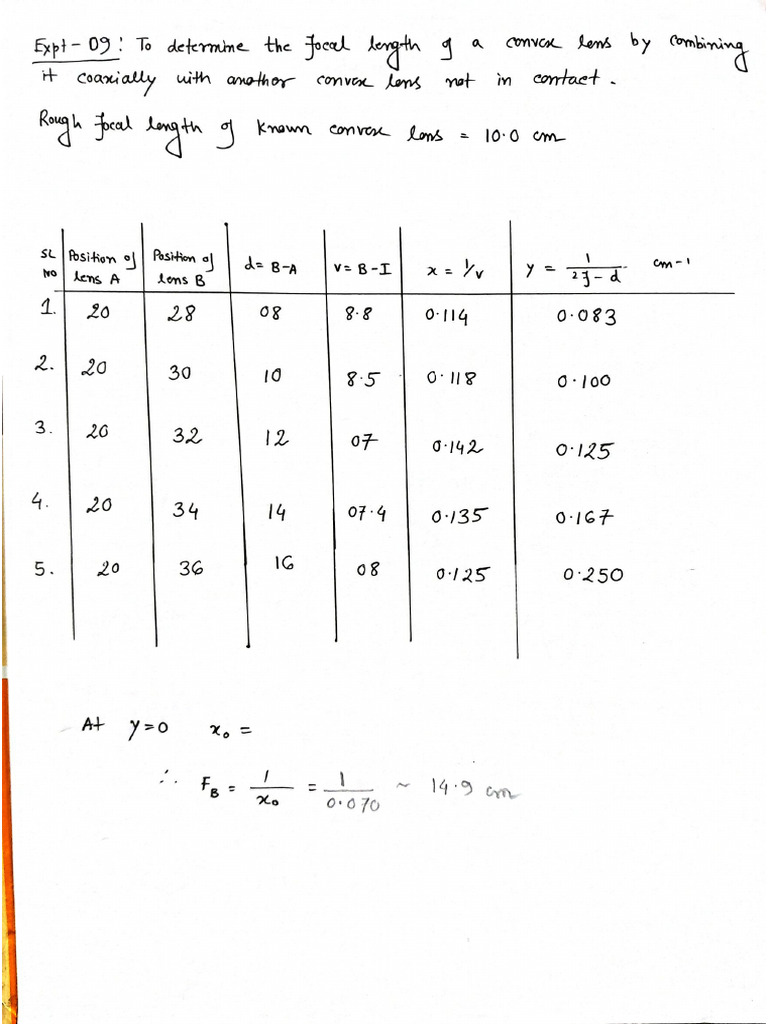 Expt-09: To determine the focal length of a convex lens by combining
it coaxially with another convex lens not in contact.
Rough focal length of known convex lens = 10.0 cm
SL NO | Position of lens A | Position of lens B | d = B-A | v = B-I | x = 1/v | y = 1/(2f-d) cm-1
1. | 20 | 28 | 08 | 8.8 | 0.114 | 0.083
2. | 20 | 30 | 10 | 8.5 | 0.118 | 0.100
3. | 20 | 32 | 12 | 07 | 0.142 | 0.125
4. | 20 | 34 | 14 | 07.4 | 0.135 | 0.167
5. | 20 | 36 | 16 | 08 | 0.125 | 0.250
At y=0 x₀ =
∴ F_B = 1/x₀ = 1/0.070 ~ 14.9 cm